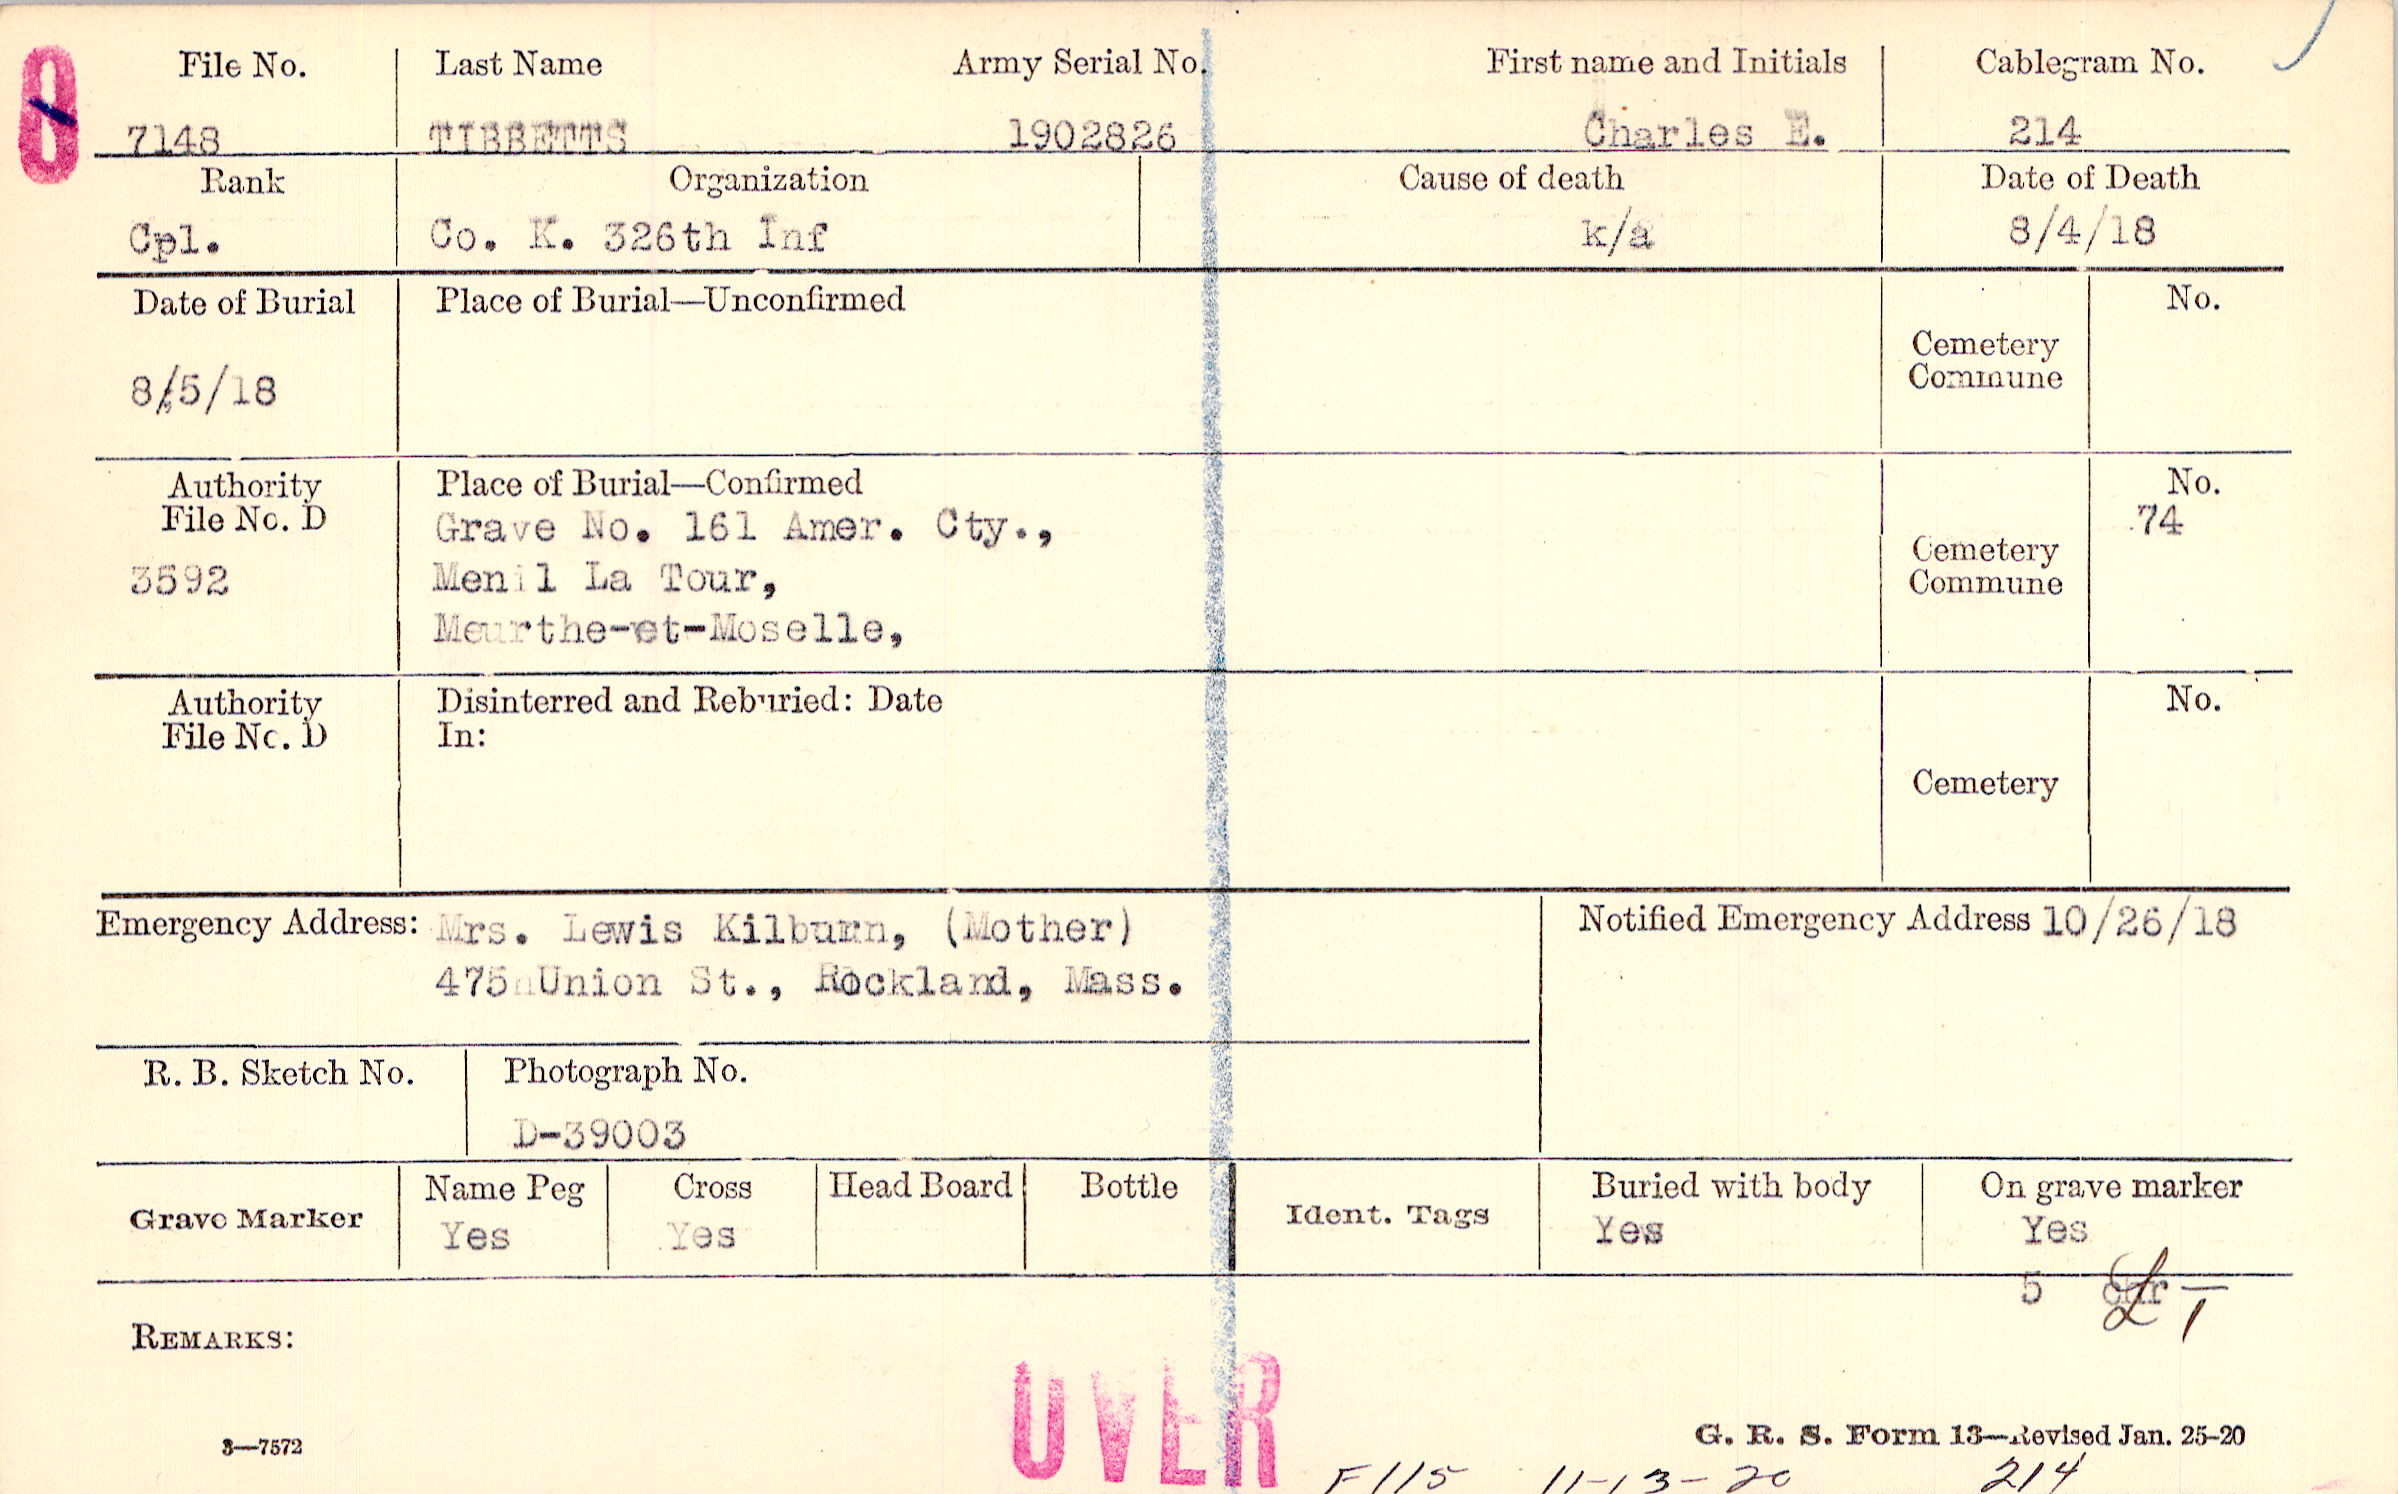 File No. Last Name Army Serial No. First name and Initials Cablegram No.
7148 TIBBETTS 1902826 Charles E. 214
Rank Organization Cause of death Date of Death
Cpl. Co. K. 326th Inf k/a 8/4/18
Date of Burial Place of Burial—Unconfirmed No.
Cemetery
Commune
8/5/18
Authority Place of Burial—Confirmed No.
File No. D Grave No. 161 Amer. Cty., 74
Cemetery
3592 Menil La Tour, Commune
Meurthe-et-Moselle,
Authority Disinterred and Reburied: Date No.
File No. D In:
Cemetery
Emergency Address: Mrs. Lewis Kilburn, (Mother) Notified Emergency Address 10/26/18
475 Union St., Rockland, Mass.
R. B. Sketch No. Photograph No.
D-39003
Grave Marker Name Peg Cross Head Board Bottle Ident. Tags Buried with body On grave marker
Yes Yes Yes Yes
5
REMARKS:
OVER
3—7572 G. R. S. Form 13—Revised Jan. 25-20
F115 11-13-20 214